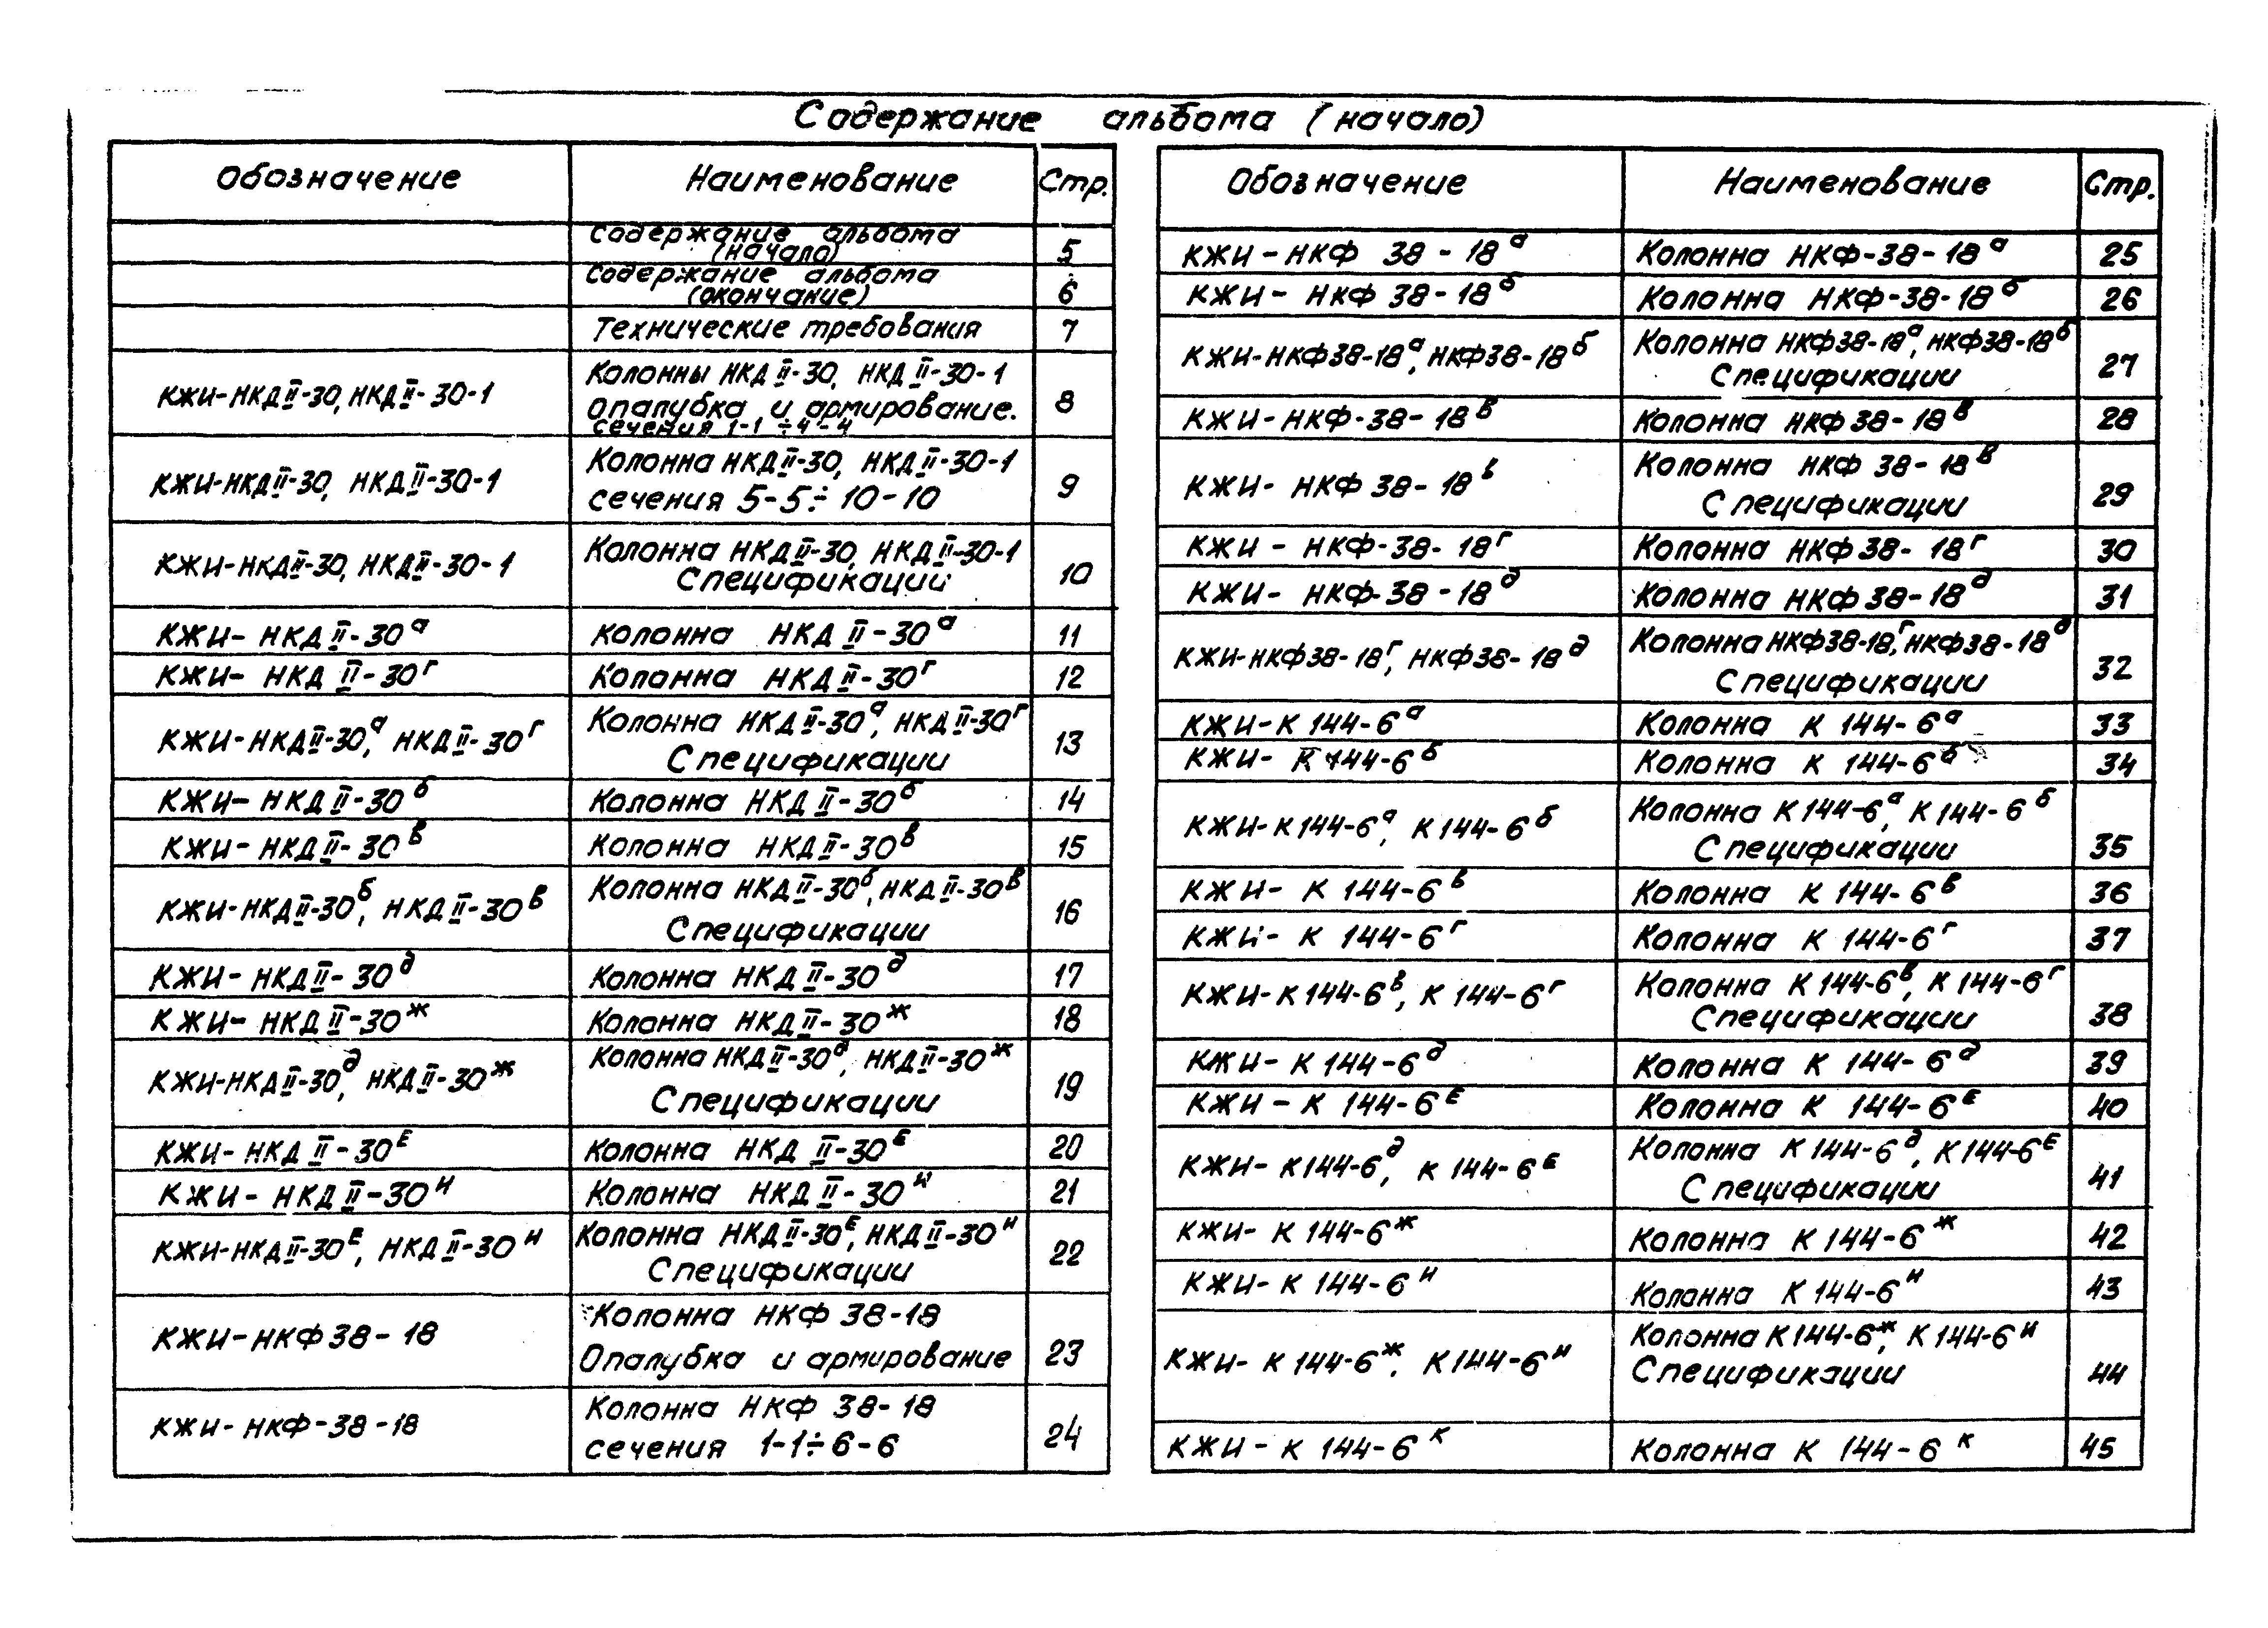 Содержание альбома (начало)
Обозначение Наименование Стр.
Содержание альбома
(начало) 5
Содержание альбома
(окончание) 6
Технические требования 7
КЖИ-НКДII-30, НКДII-30-1 Колонны НКДII-30, НКДII-30-1
Опалубка и армирование.
сечения 1-1÷4-4 8
КЖИ-НКДII-30, НКДII-30-1 Колонна НКДII-30, НКДII-30-1
сечения 5-5÷10-10 9
КЖИ-НКДII-30, НКДII-30-1 Колонна НКДII-30, НКДII-30-1
Спецификации 10
КЖИ-НКДII-30ᵃ Колонна НКДII-30ᵃ 11
КЖИ-НКДII-30г Колонна НКДII-30г 12
КЖИ-НКДII-30а, НКДII-30г Колонна НКДII-30а, НКДII-30г
Спецификации 13
КЖИ-НКДII-30б Колонна НКДII-30б 14
КЖИ-НКДII-30в Колонна НКДII-30в 15
КЖИ-НКДII-30б, НКДII-30в Колонна НКДII-30б, НКДII-30в
Спецификации 16
КЖИ-НКДII-30д Колонна НКДII-30д 17
КЖИ-НКДII-30ж Колонна НКДII-30ж 18
КЖИ-НКДII-30д, НКДII-30ж Колонна НКДII-30д, НКДII-30ж
Спецификации 19
КЖИ-НКДII-30Е Колонна НКДII-30Е 20
КЖИ-НКДII-30и Колонна НКДII-30и 21
КЖИ-НКДII-30Е, НКДII-30и Колонна НКДII-30Е, НКДII-30и
Спецификации 22
КЖИ-НКФ38-18 Колонна НКФ 38-18
Опалубка и армирование 23
КЖИ-НКФ-38-18 Колонна НКФ 38-18
сечения 1-1÷6-6 24
Обозначение Наименование Стр.
КЖИ-НКФ 38-18а Колонна НКФ-38-18а 25
КЖИ-НКФ 38-18б Колонна НКФ-38-18б 26
КЖИ-НКФ38-18а, НКФ38-18б Колонна НКФ38-18а, НКФ38-18б
Спецификации 27
КЖИ-НКФ-38-18в Колонна НКФ38-18в 28
КЖИ-НКФ38-18в Колонна НКФ 38-18в
Спецификации 29
КЖИ-НКФ-38-18г Колонна НКФ38-18г 30
КЖИ-НКФ-38-18д Колонна НКФ38-18д 31
КЖИ-НКФ38-18г, НКФ38-18д Колонна НКФ38-18г, НКФ38-18д
Спецификации 32
КЖИ-К 144-6а Колонна К 144-6а 33
КЖИ-К 144-6б Колонна К 144-6б 34
КЖИ-К144-6а, К144-6б Колонна К144-6а, К144-6б
Спецификации 35
КЖИ-К 144-6в Колонна К 144-6в 36
КЖИ-К 144-6г Колонна К 144-6г 37
КЖИ-К144-6в, К 144-6г Колонна К144-6в, К144-6г
Спецификации 38
КЖИ-К 144-6д Колонна К 144-6д 39
КЖИ-К 144-6Е Колонна К 144-6Е 40
КЖИ-К144-6д, К 144-6Е Колонна К144-6д, К144-6Е
Спецификации 41
КЖИ-К 144-6ж Колонна К144-6ж 42
КЖИ-К 144-6и Колонна К 144-6и 43
КЖИ-К144-6ж, К144-6и Колонна К144-6ж, К144-6и
Спецификации 44
КЖИ-К 144-6к Колонна К 144-6к 45